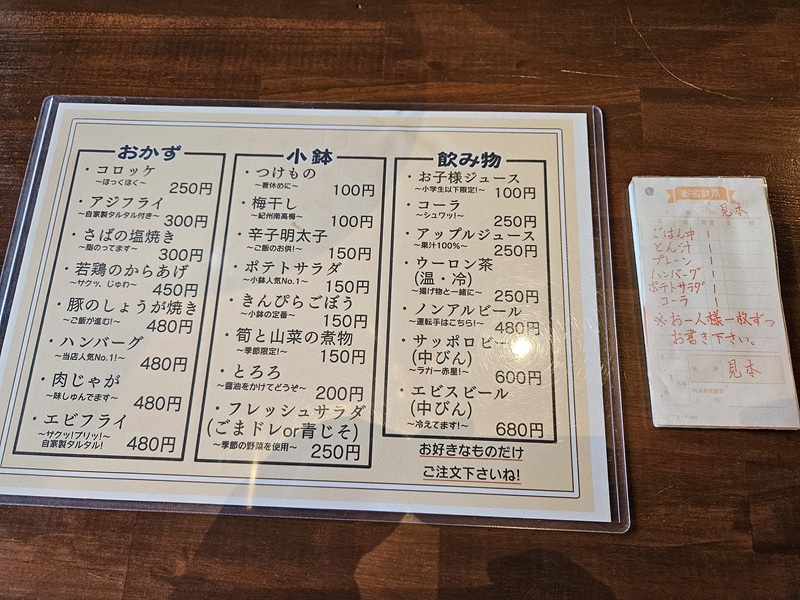 おかず
・コロッケ
～ほっくほく～
250円
・アジフライ
～自家製タルタル付き～
300円
・さばの塩焼き
～脂のってます～
300円
・若鶏のからあげ
～サクッ、じゅわ～
450円
・豚のしょうが焼き
～ご飯が進む!～
480円
・ハンバーグ
～当店人気No.1!～
480円
・肉じゃが
～味しゅんでます～
480円
・エビフライ
～サクッ!プリッ!～
自家製タルタル!
480円
小鉢
・つけもの
～箸休めに～
100円
・梅干し
～紀州南高梅～
100円
・辛子明太子
～ご飯のお供!～
150円
・ポテトサラダ
～小鉢人気No.1～
150円
・きんぴらごぼう
～小鉢の定番～
150円
・筍と山菜の煮物
～季節限定!～
150円
・とろろ
～醤油をかけてどうぞ～
200円
・フレッシュサラダ
(ごまドレor青じそ)
～季節の野菜を使用～
250円
飲み物
・お子様ジュース
～小学生以下限定!～
100円
・コーラ
～シュワッ!～
250円
・アップルジュース
～果汁100%～
250円
・ウーロン茶
(温・冷)
～揚げ物と一緒に～
250円
・ノンアルビール
～運転手はこちら!～
480円
・サッポロビー
(中びん)
～ラガー赤星!～
600円
・エビスビール
(中びん)
～冷えてます!～
680円
お好きなものだけ
ご注文下さいね!
お会計票
見本
ごはん中 1
とん汁 1
プレーン 1
ハンバーグ 1
ポテトサラダ 1
コーラ 1
※お一人様一枚ずつ
お書き下さい。
見本